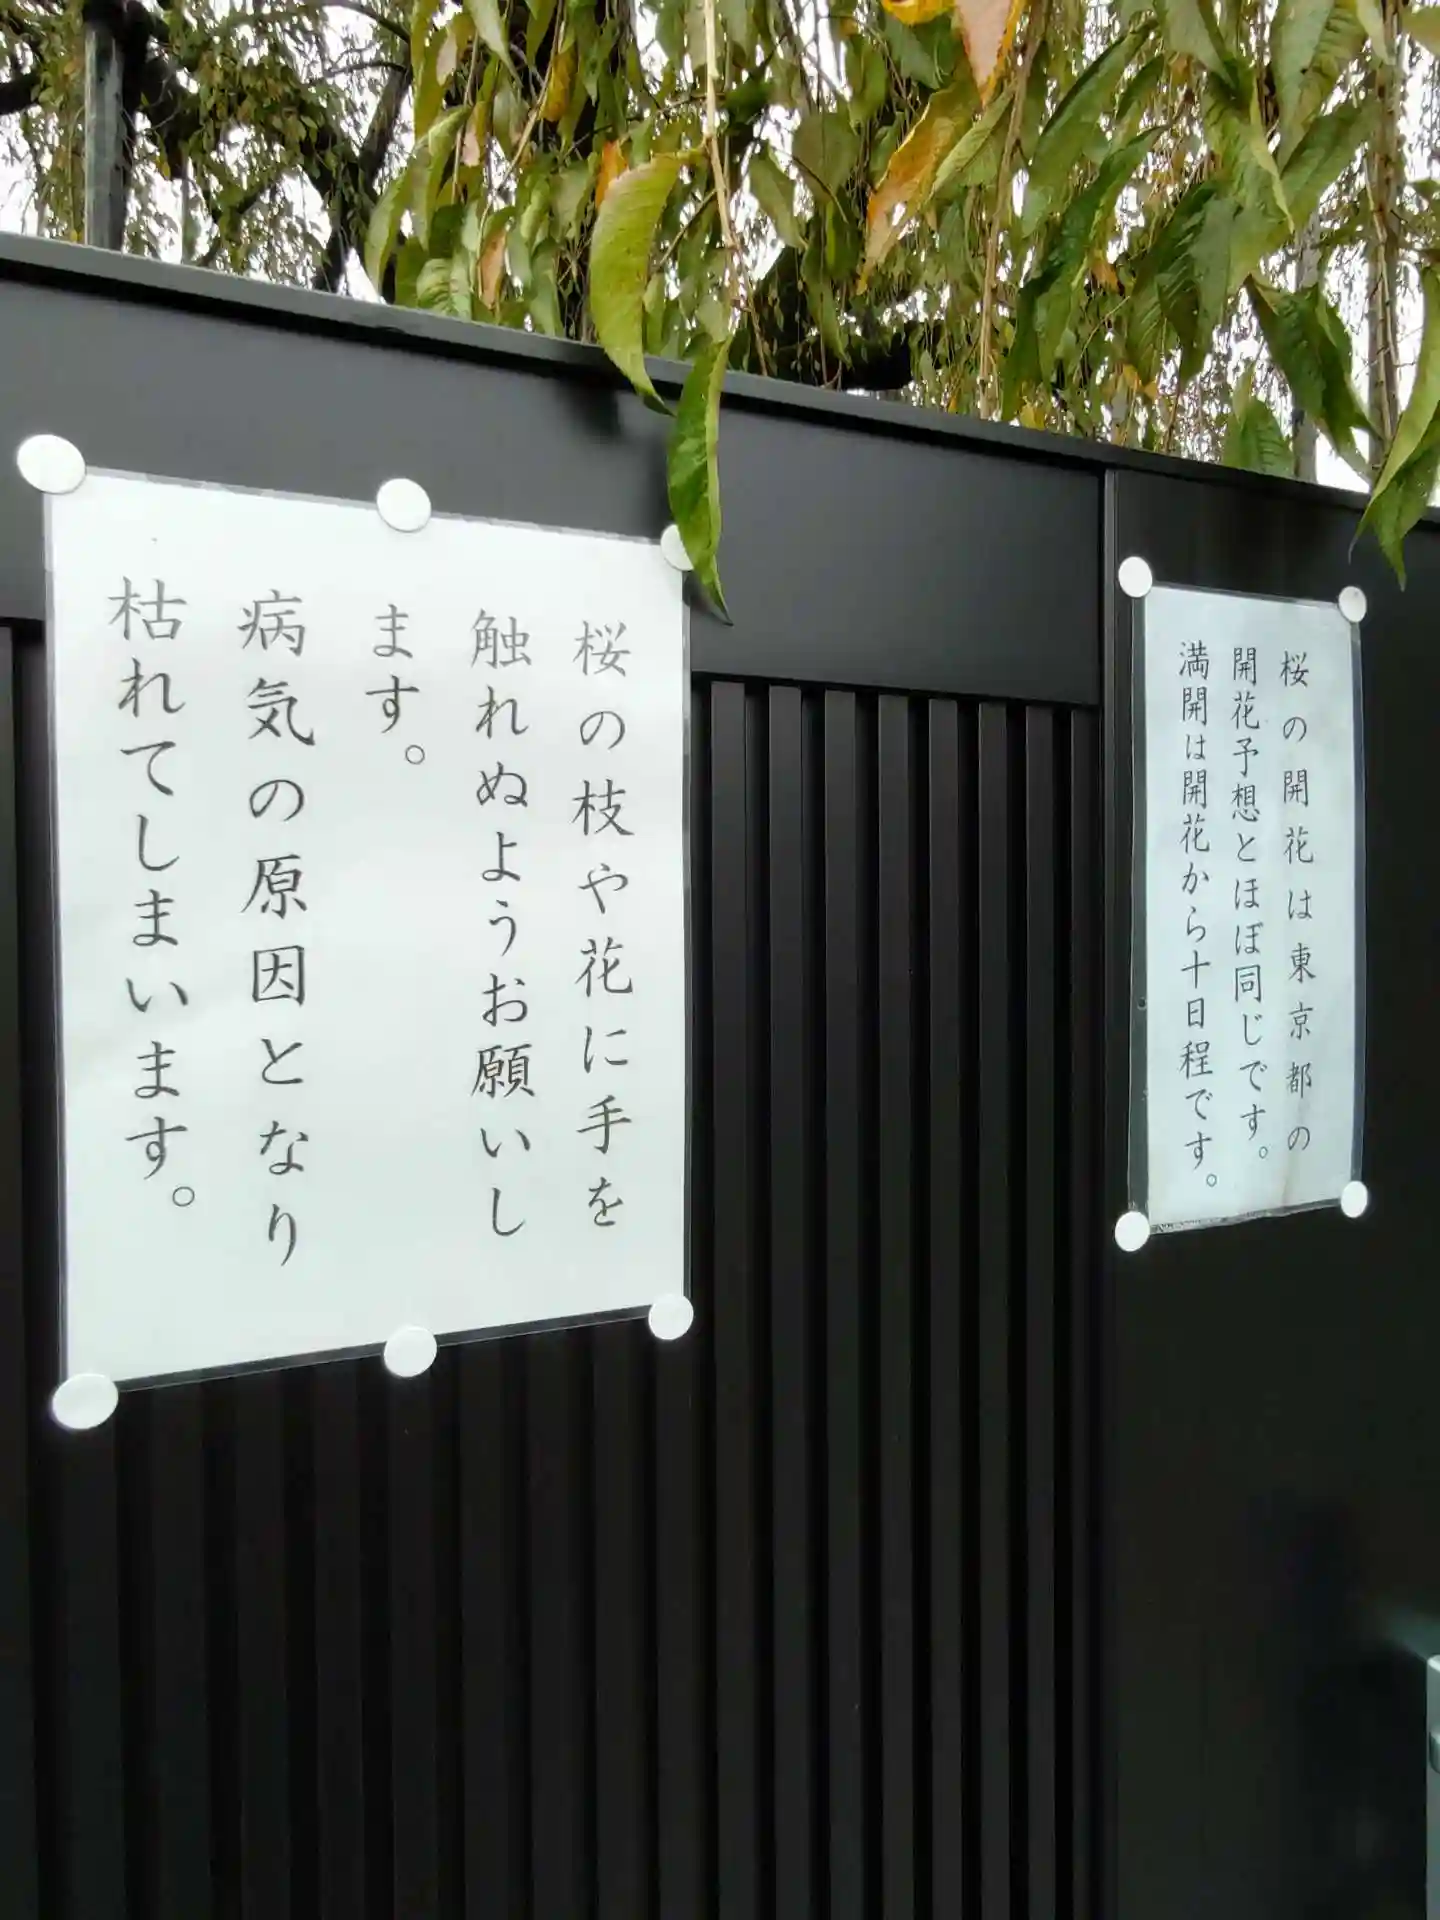 桜の枝や花に手を
触れぬようお願いし
ます。
病気の原因となり
枯れてしまいます。
桜の開花は東京都の
開花予想とほぼ同じです。
満開は開花から十日程です。